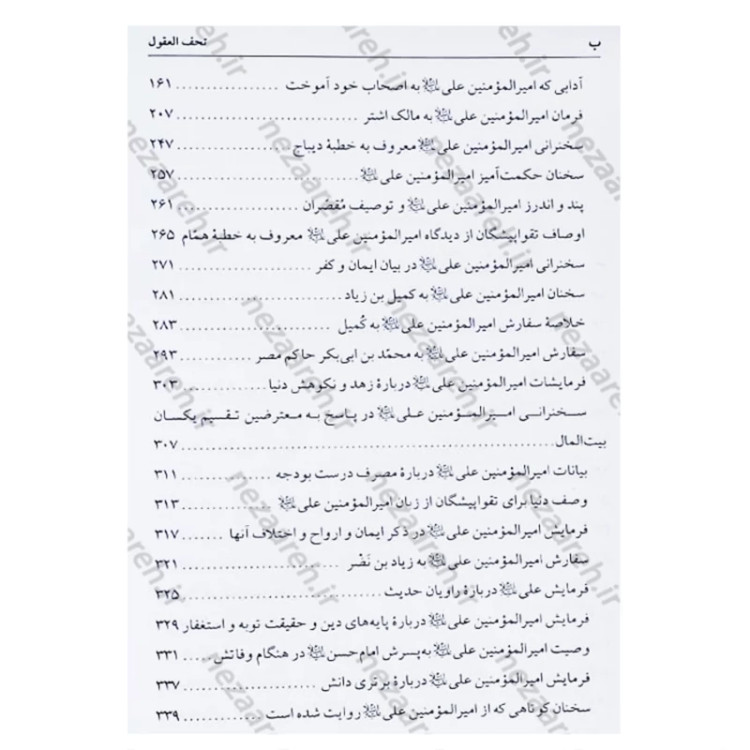 ب تحف العقول
آدابی که امیرالمؤمنین علی علیه‌السلام به اصحاب خود آموخت ................. ۱۶۱
فرمان امیرالمؤمنین علی علیه‌السلام به مالک اشتر ............................. ۲۰۷
سخنرانی امیرالمؤمنین علی علیه‌السلام معروف به خطبهٔ دیباج .................. ۲۴۷
سخنان حکمت‌آمیز امیرالمؤمنین علی علیه‌السلام ............................. ۲۵۷
پند و اندرز امیرالمؤمنین علی علیه‌السلام و توصیف مُقصّران .................... ۲۶۱
اوصاف تقواپیشگان از دیدگاه امیرالمؤمنین علی علیه‌السلام معروف به خطبهٔ همّام ۲۶۵
سخنرانی امیرالمؤمنین علی علیه‌السلام در بیان ایمان و کفر .................... ۲۷۱
سخنان امیرالمؤمنین علی علیه‌السلام به کمیل بن زیاد ........................... ۲۸۱
خلاصهٔ سفارش امیرالمؤمنین علی علیه‌السلام به کُمیل ....................... ۲۸۳
سفارش امیرالمؤمنین علی علیه‌السلام به محمّد بن ابی‌بکر حاکم مصر ............. ۲۹۳
فرمایشات امیرالمؤمنین علی علیه‌السلام دربارهٔ زهد و نکوهش دنیا ............. ۳۰۳
سخنرانی امیرالمؤمنین علی علیه‌السلام در پاسخ به معترضین تقسیم یکسان
بیت‌المال ............................................................. ۳۰۷
بیانات امیرالمؤمنین علی علیه‌السلام دربارهٔ مصرف درست بودجه ............... ۳۱۱
وصف دنیا برای تقواپیشگان از زبان امیرالمؤمنین علی علیه‌السلام .............. ۳۱۳
فرمایش امیرالمؤمنین علی علیه‌السلام در ذکر ایمان و ارواح و اختلاف آنها ....... ۳۱۷
سفارش امیرالمؤمنین علی علیه‌السلام به زیاد بن نَضْر ......................... ۳۲۱
فرمایش علی علیه‌السلام دربارهٔ راویان حدیث ................................. ۳۲۵
فرمایش امیرالمؤمنین علی علیه‌السلام دربارهٔ پایه‌های دین و حقیقت توبه و استغفار ۳۲۹
وصیت امیرالمؤمنین علی علیه‌السلام به پسرش امام حسن علیه‌السلام در هنگام وفاتش ..... ۳۳۱
فرمایش امیرالمؤمنین علی علیه‌السلام دربارهٔ برتری دانش .................... ۳۳۷
سخنان کوتاهی که از امیرالمؤمنین علی علیه‌السلام روایت شده است ............ ۳۳۹
nezaareh.ir